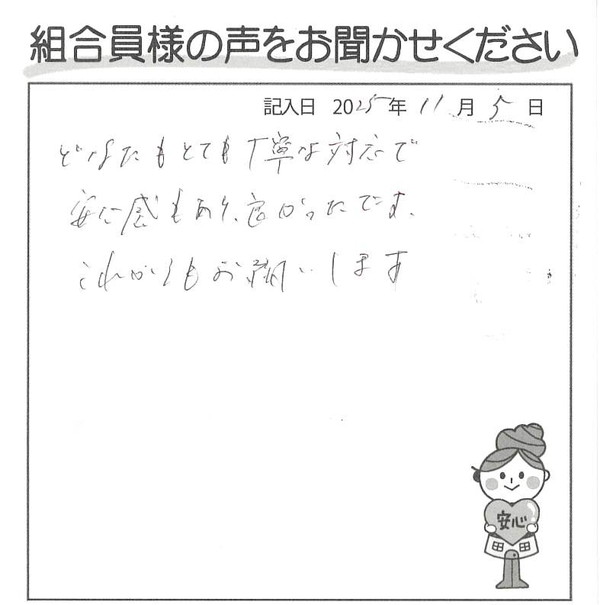 組合員様の声をお聞かせください
記入日 2025年 11月 5日
どなたもとても丁寧な対応で
安心感もあり、良かったです。
これからもお願いします
安心